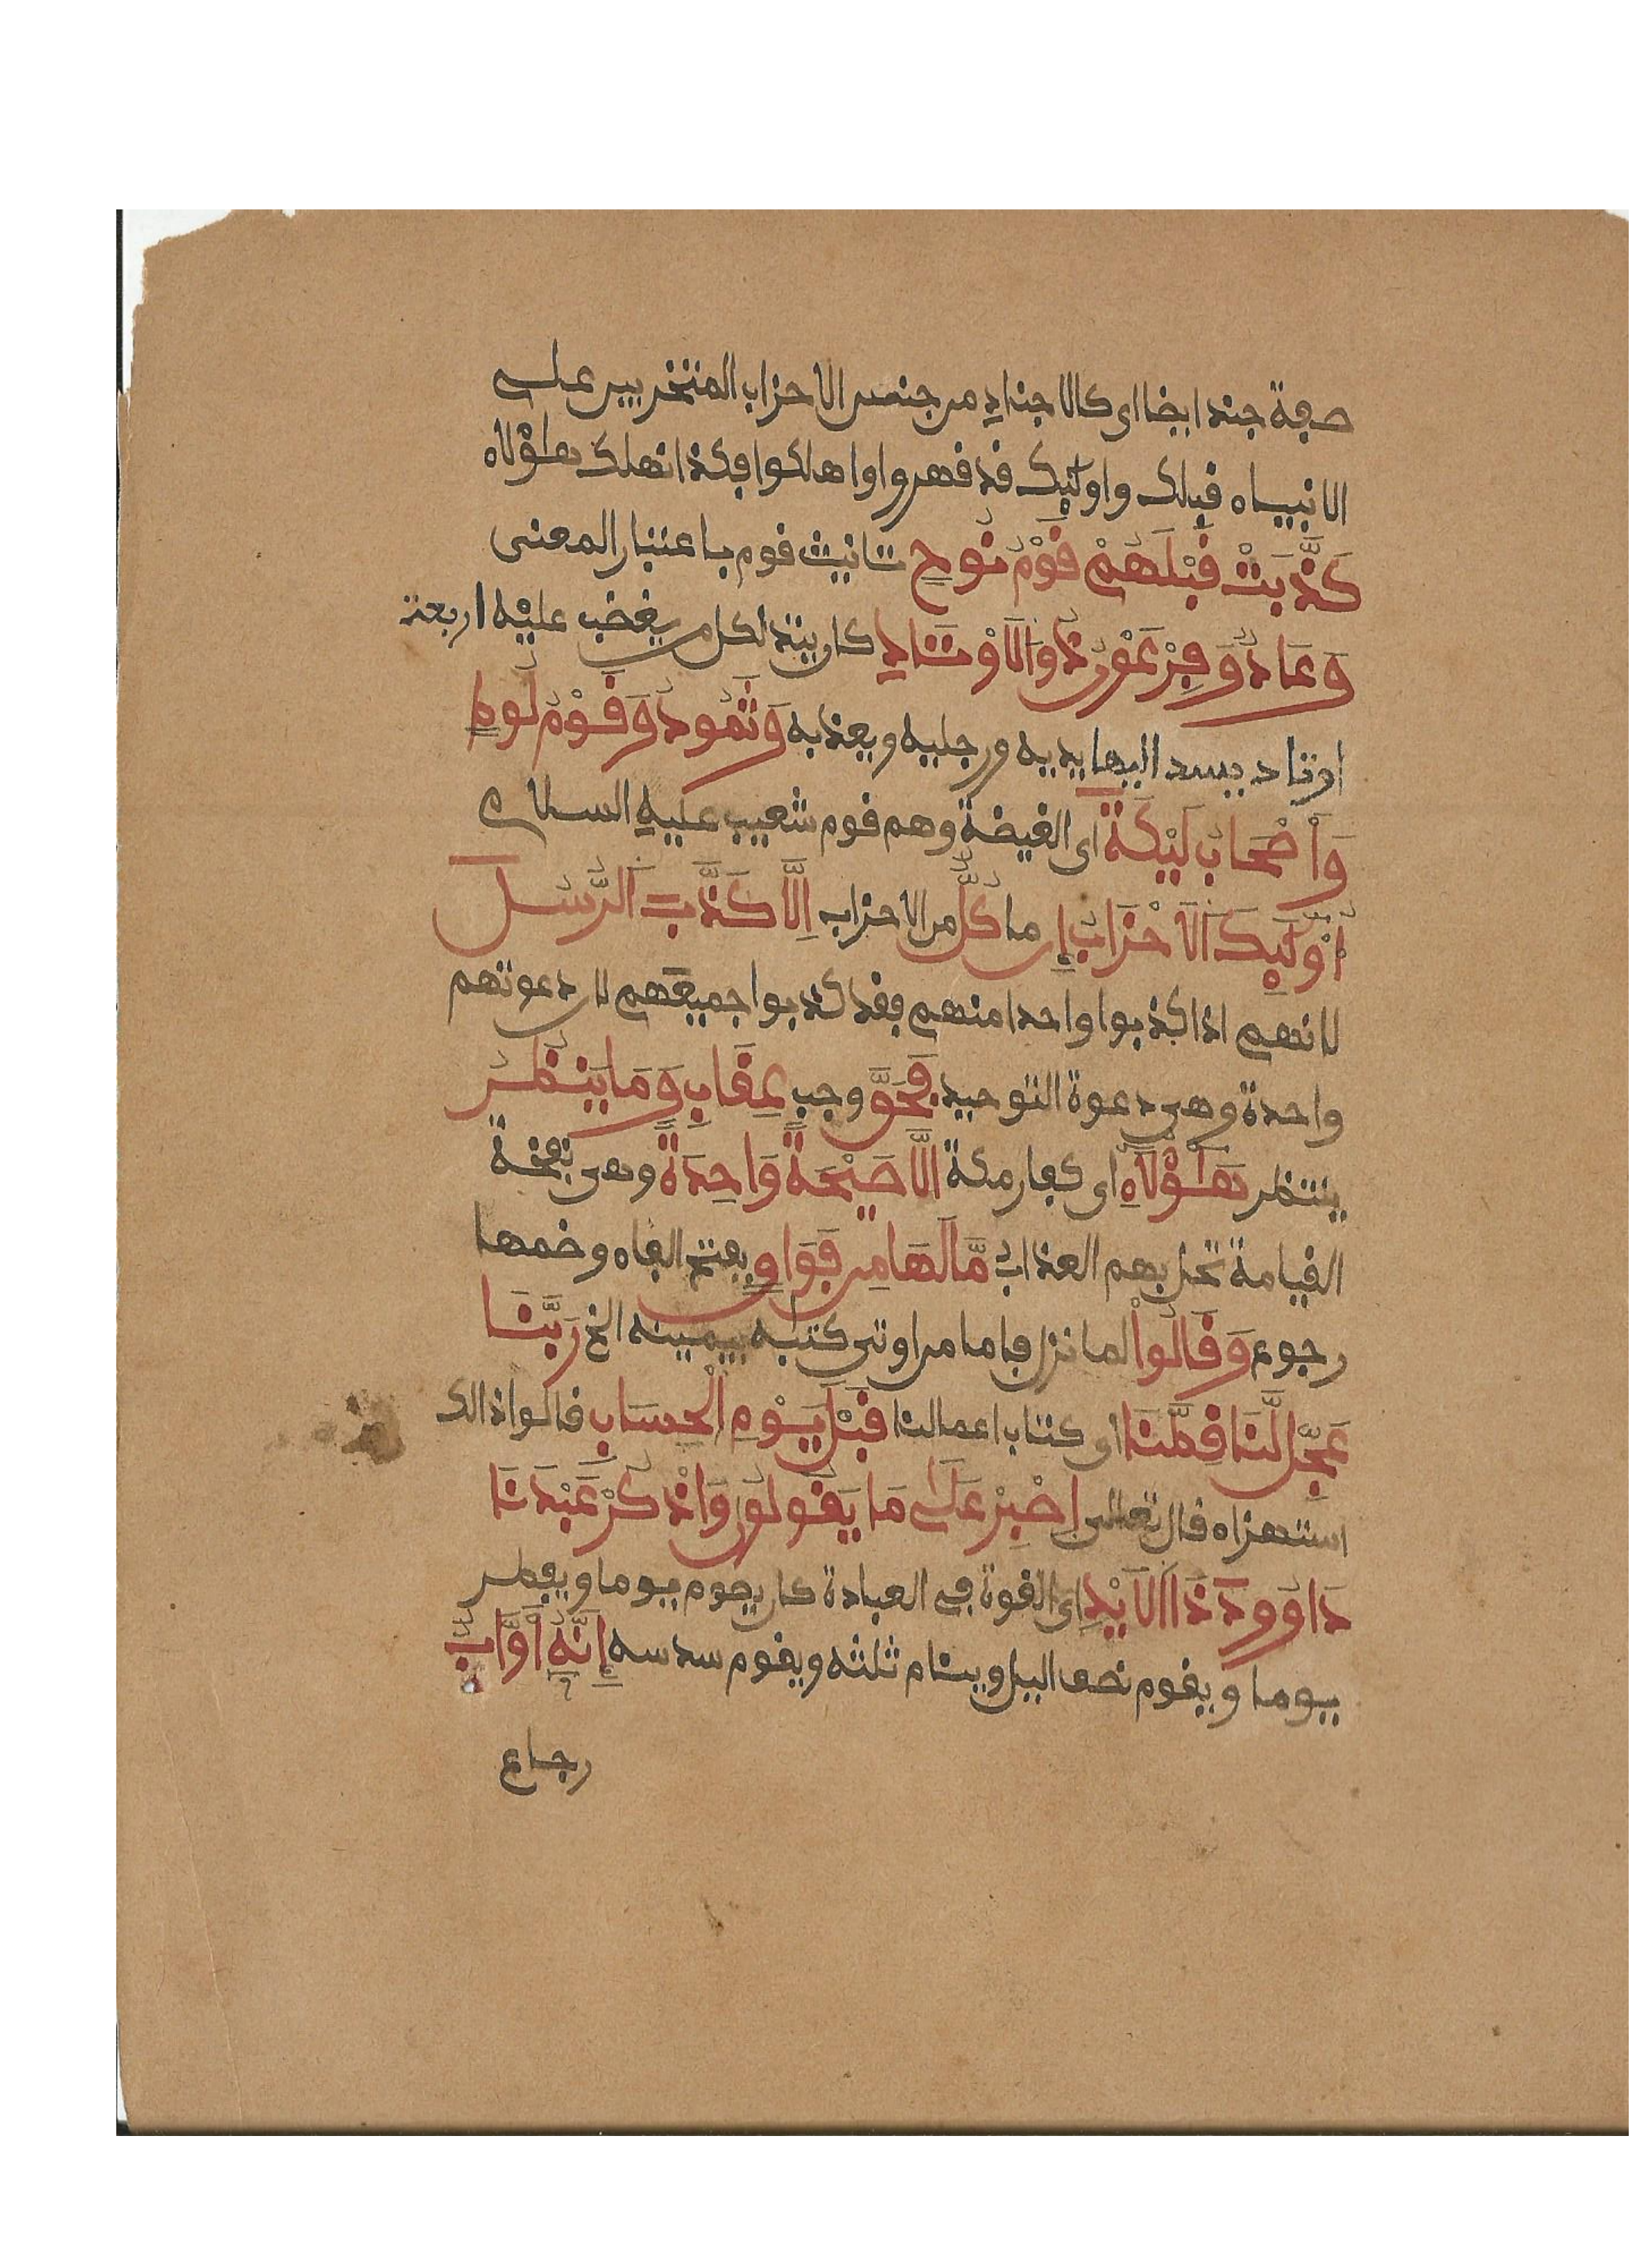 صفة جند ايضا اى كالاجناد من جنس الاحزاب المتحزبين على
الانبياء قبلك واولئك قد قهروا واهلكوا فكذا نهلك هؤلاء
كَذَّبَتْ قَبْلَهُمْ قَوْمُ نُوحٍ تانيث قوم باعتبار المعنى
وَعَادٌ وَفِرْعَوْنُ ذُو الَاوْتَادِ كان يتد لكل من يغضب عليه اربعة
اوتاد يسد اليها يديه ورجليه ويعذبه وَثَمُودُ وَقَوْمُ لُوطٍ
وَأَصْحَابُ لَيْكَةَ اى الغيضة وهم قوم شعيب عليه السلام
أُوْلَئِكَ الَاحْزَابُ إِن ما كُلٌّ من الاحزاب اِلَّا كَذَّبَ الرُّسُلَ
لانهم اذا كذبوا واحدا منهم فقد كذبوا جميعهم لان دعوتهم
واحدة وهى دعوة التوحيد فَحَقَّ وجب عِقَابِ وَمَا يَنظُرُ
ينتظر هَؤُلَاءِ اى كفار مكة اِلَّا صَيْحَةً وَاحِدَةً وهى نفخة
القيامة تحل بهم العذاب مَّا لَهَا مِن فَوَاقٍ بفتح الفاء وضمها
رجوع وَقَالُواْ لما نزل فاما من اوتى كتبه بيمينه الخ رَبَّنَا
عَجِّل لَّنَا قِطَّنَا اى كتاب اعمالنا قَبْلَ يَوْمِ الْحِسَابِ قالوا ذالك
استهزاء قال تعالى اِصْبِرْ عَلَى مَا يَقُولُونَ وَاذْكُرْ عَبْدَنَا
دَاوُودَ ذَا الَايْدِ اى القوة فى العبادة كان يصوم يوما ويفطر
يوما ويقوم نصف اليل وينام ثلثه ويقوم سدسه إِنَّهُ أَوَّابٌ
رجاع